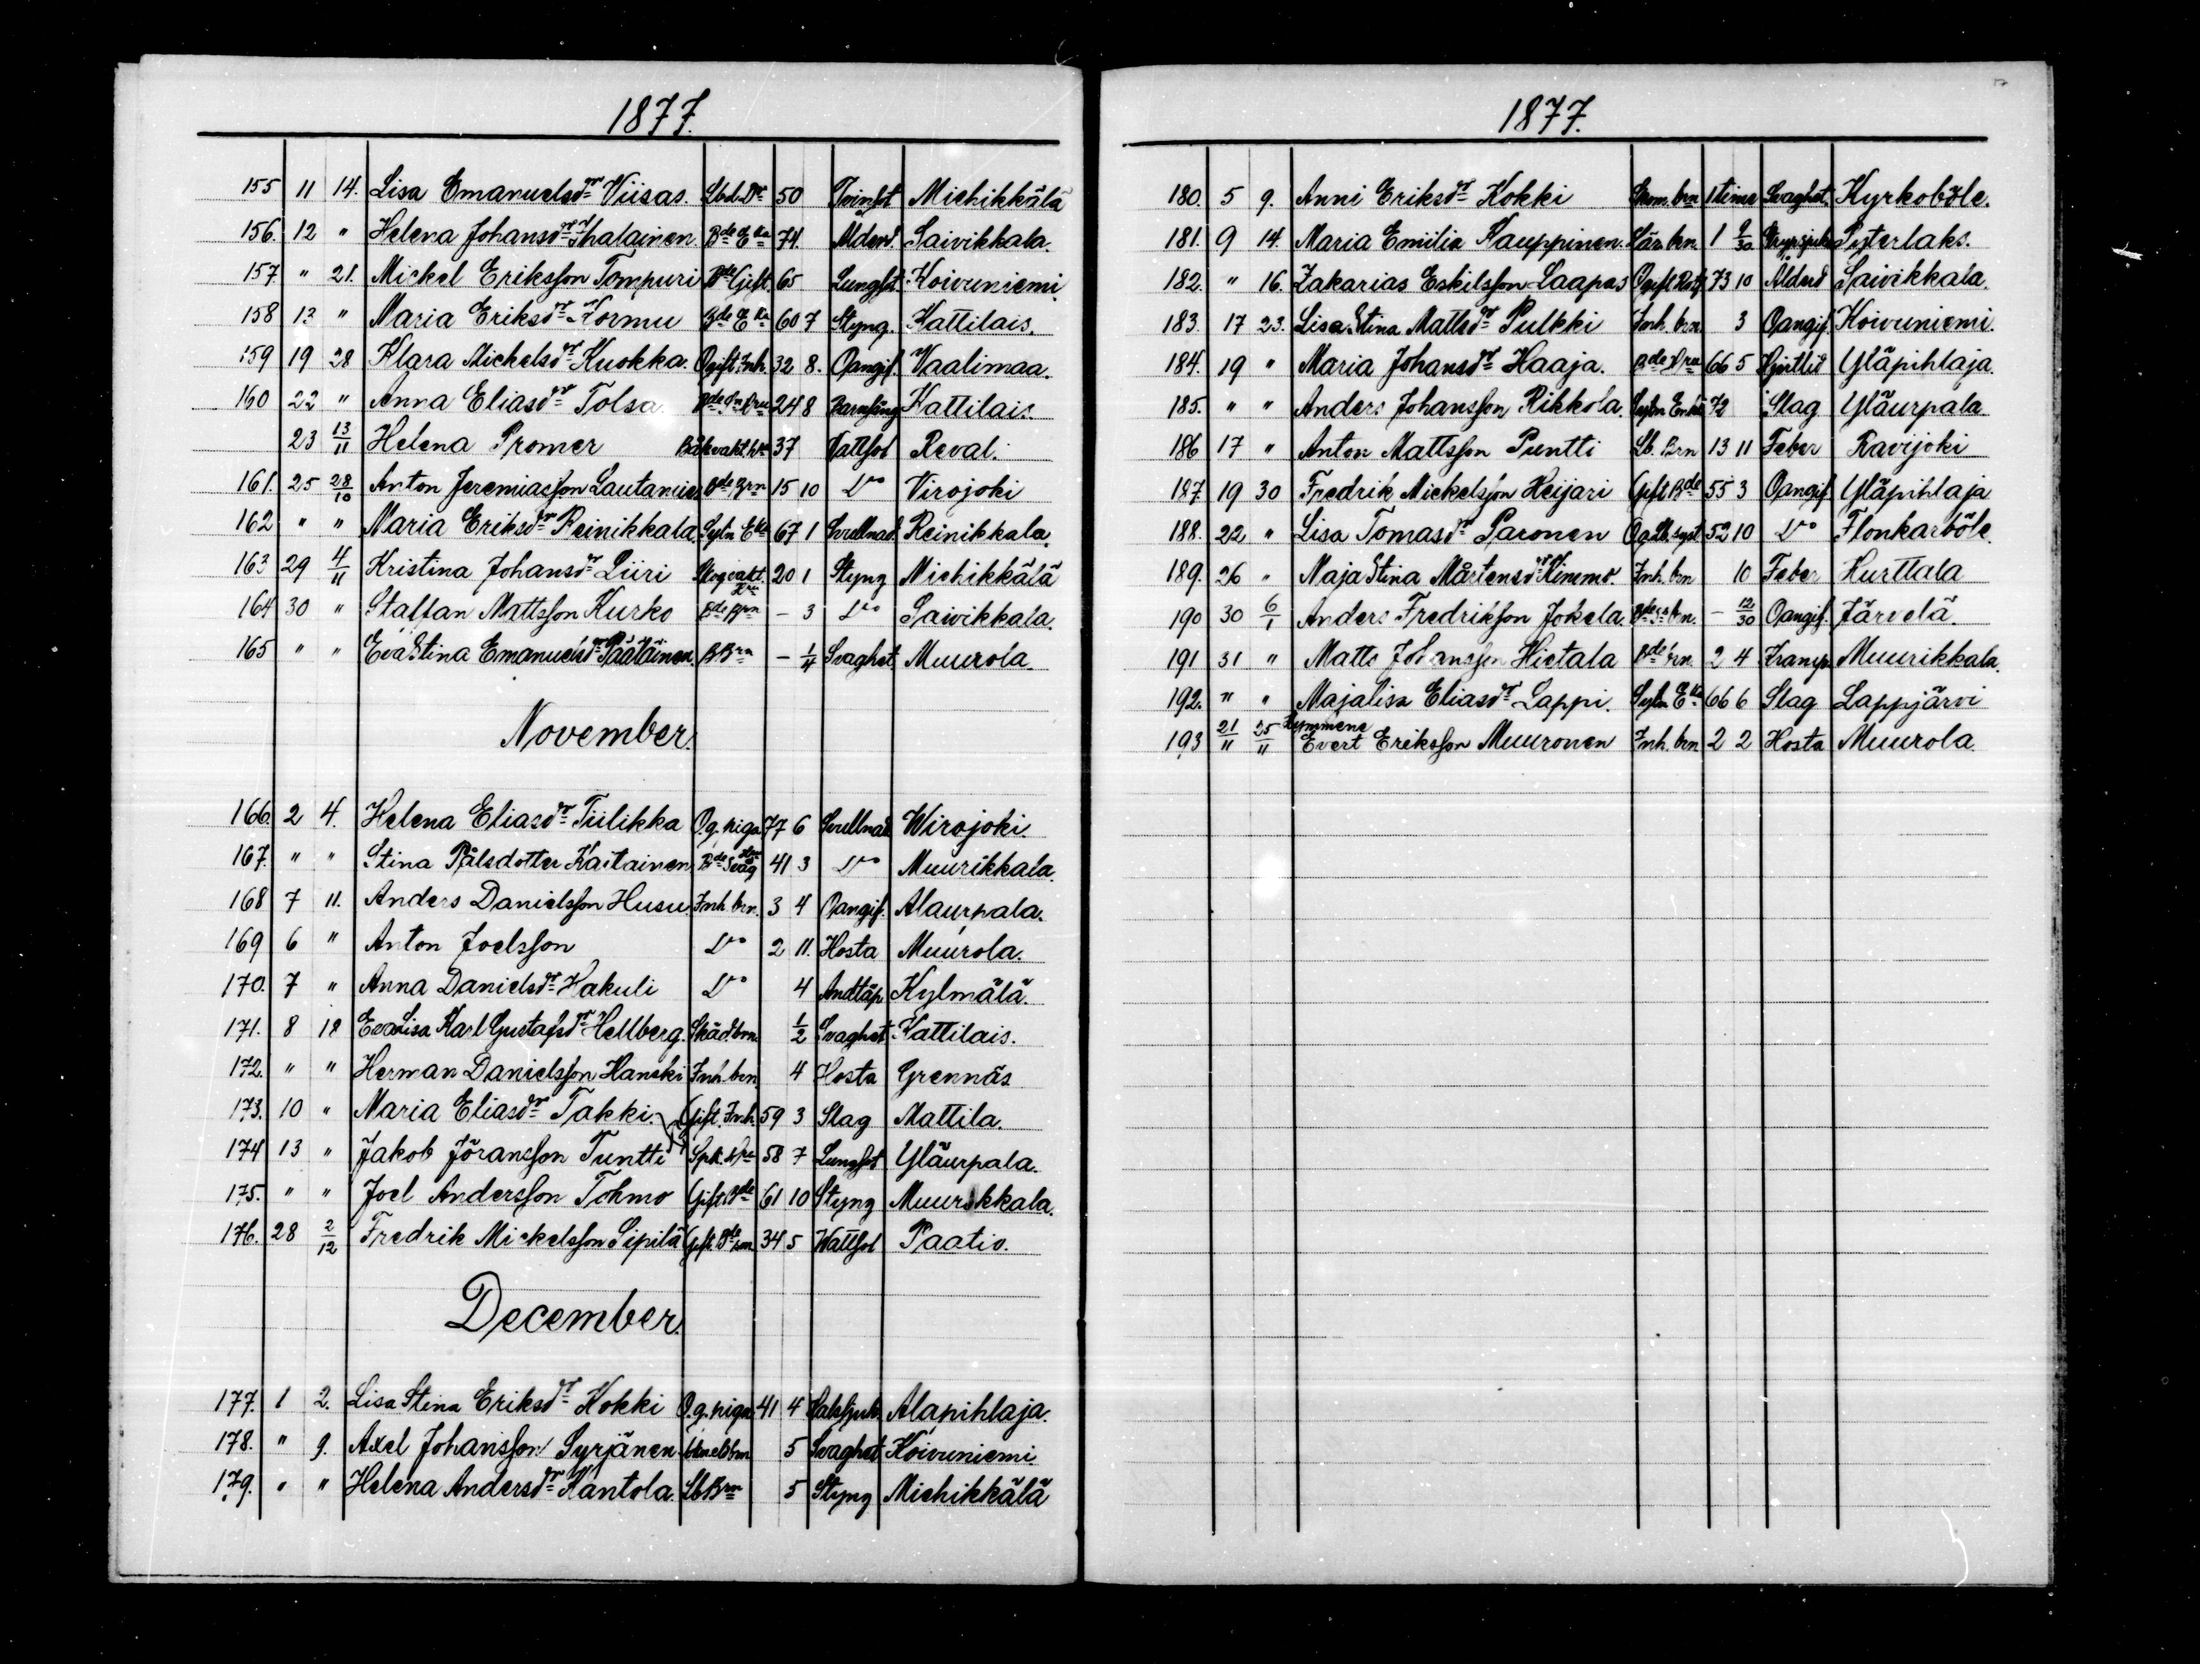 1877.
155 11 14. Lisa Emanuelsdr Viisas. Lbd. Dr 50 Tvinsot Miehikkälä
156. 12 " Helena Johansdr Ihalainen Bde Eka 74. Ålderd. Saivikkala.
157. " 21. Mickel Eriksson Tompuri Bde Gift. 65 Lungst. Koivuniemi
158 13 " Maria Eriksdr Kormu Bde Eka 60 7 Styng. Kattilais.
159 19 28 Klara Mickelsdr Kuokka. Ogift Inh. 32 8. Oangif. Vaalimaa.
160 22 " Anna Eliasdr Tolsa 24 8 Barnsäng Kattilais.
23 13/11 Helena Promer 37 Vattsot Reval.
161. 25 28/10 Anton Jeremiasson Lautamies Bde Brn 15 10 Do Virojoki
162 " " Maria Eriksdr Reinikkala. Sytn Eka 67 1 Svullnad. Reinikkala.
163 29 4/11 Kristina Johansdr Liiri Skogvakt. Hru 20 1 Styng Miehikkälä
164 30 " Staffan Mattsson Kurko Bde Brn - 3 Do Saivikkala.
165 " " Eva Stina Emanuelsdr Päätäinen. B. Brn - 1/4 Svaghet Muurola.
November.
166. 2 4. Helena Eliasdr Tiilikka O.g. piga 77 6 Svullnad Wirojoki.
167. " " Stina Pålsdotter Kaitainen Bde Svåg Hru 41 3 Do Muurikkala.
168 7 11. Anders Danielsson Husu. Inh brn. 3 4 Oangif. Alaurpala.
169 6 " Anton Joelsson Do 2 11. Hosta Muurola.
170. 7 " Anna Danielsdr Hakuli Do 4 Andtäp Kylmälä.
171. 8 18 Eva Lisa Karl Gustafsdr Hellberg. Skäd. brn. 1/2 Svaghet Kattilais.
172. " " Herman Danielsson Hanski Inh. brn. 4 Hosta Grennäs
173. 10 " Maria Eliasdr Takki. Gift. Inh. 59 3 Slag Mattila.
174 13 " Jakob Jöransson Tuntti 58 7 Lungsot Yläurpala.
175. " " Joel Andersson Tohmo Gift. Bde 61 10 Styng Muurikkala.
176. 28 2/12 Fredrik Mickelsson Sipilä Gift. Bde son 34 5 Wattsot Paatio.
December.
177. 1 2. Lisa Stina Eriksdr Kokki O.g. piga 41 4 Halssjuk. Alapihlaja.
178. " 9. Axel Johansson Syrjänen 5 Svaghet Koivuniemi.
179. " " Helena Andersdr Kantola. Lb Brn 5 Styng Miehikkälä
1877.
180. 5 9. Anni Eriksdr Kokki brn 1 time Svaghet. Kyrkoböle.
181. 9 14. Maria Emilia Kauppinen. brn. 1 9/30 Strypsjuka Pyterlaks.
182. " 16. Zakarias Eskilsson Laapas Ogift Rotf. 73 10 Ålderd Saivikkala.
183. 17 23. Lisa Stina Mattsdr Pulkki Inh. brn. 3 Oangif. Koivuniemi.
184. 19 " Maria Johansdr Haaja. Bde Hru 66 5 Yläpihlaja.
185. " " Anders Johansson Rikkola. Sytn Enkl. 72 Slag Yläurpala
186 17 " Anton Mattsson Puntti Lb. Brn 13 11 Feber Ravijoki
187. 19 30 Fredrik Mickelsson Heijari Gift Bde 55 3 Oangif. Yläpihlaja
188. 22 " Lisa Tomasdr Paronen 52 10 Do Flonkarböle.
189. 26 " Maja Stina Mårtensdr Kinemo. Inh. brn 10 Feber Hurttala
190 30 6/1 Anders Fredriksson Jokela. Bde brn. - 12/30 Oangif. Järvelä.
191 31 " Matts Johansson Hietala Bde brn. 2 4 Kramp. Muurikkala.
192. " " Majalisa Eliasdr Lappi. Sytn Eka 66 6 Slag Lappjärvi
Kymmene
193 21/11 25/11 Evert Eriksson Muuronen Inh. brn 2 2 Hosta Muurola.